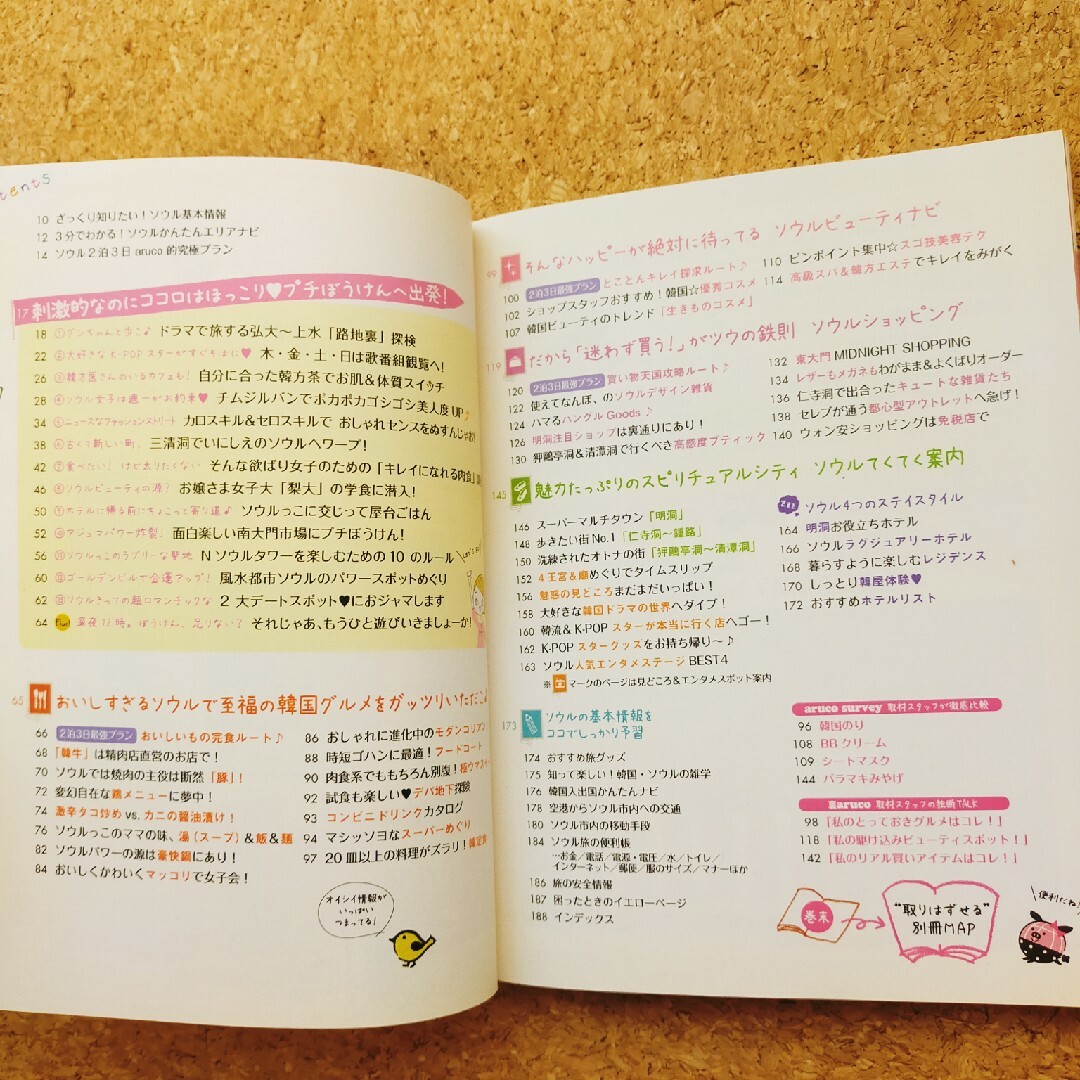 tents
10 ざっくり知りたい！ソウル基本情報
12 3分でわかる！ソウルかんたんエリアナビ
14 ソウル2泊3日 aruco的究極プラン
17 刺激的なのにココロはほっこり♥プチぼうけんへ出発！
18 ①グンちゃんと歩こ♪ ドラマで旅する弘大〜上水「路地裏」探検
22 ②大好きな K-POPスターがすぐそばに♥ 木・金・土・日は歌番組観覧へ！
26 ③韓方医さんのいるカフェも！ 自分に合った韓方茶でお肌＆体質スイッチ
28 ④ソウル女子は週一がお約束♥ チムジルバンでポカポカゴシゴシ美人度UP♪
34 ⑤ニュースなファッションストリート カロスキル＆セロスキルで おしゃれセンスをぬすんじゃお
38 ⑥古くて新しい町、 三清洞でいにしえのソウルへワープ！
42 ⑦食べたい！けど太りたくない そんな欲ばり女子のための「キレイになれる肉食」
46 ⑧ソウルビューティの源？ お嬢さま女子大「梨大」の学食に潜入！
50 ⑨ホテルに帰る前にちょこっと寄り道♪ ソウルっこに交じって屋台ごはん
52 ⑩マジョマパワー炸裂！ 面白楽しい南大門市場にプチぼうけん！
56 ⑪ソウルっこのラブリーな聖地 Nソウルタワーを楽しむための10のルール
Let's go!
60 ⑫ゴールデンビルで金運アップ！ 風水都市ソウルのパワースポットめぐり
62 ⑬ソウルきっての超ロマンチックな 2大デートスポット♥におジャマします
64 深夜12時。ぼうけん、足りない？ それじゃあ、もうひと遊びいきましょーか！
65 おいしすぎるソウルで至福の韓国グルメをガッツリいただこ
66 2泊3日最強プラン おいしいもの完食ルート♪
68 「韓牛」は精肉店直営のお店で！
70 ソウルでは焼肉の主役は断然「豚」！
72 変幻自在な鶏メニューに夢中！
74 激辛タコ炒め vs. カニの醤油漬け！
76 ソウルっこのママの味、湯（スープ）＆飯＆麺
82 ソウルパワーの源は豪快鍋にあり！
84 おいしくかわいくマッコリで女子会！
86 おしゃれに進化中のモダンコリアン
88 時短ゴハンに最適！フードコート
90 肉食系でももちろん別腹！極ウマスイ
92 試食も楽しい♥デパ地下探険
93 コンビニドリンクカタログ
94 マシッソヨなスーパーめぐり
97 20皿以上の料理がズラリ！韓定食
オイシイ情報が
いっぱい
つまってる♪
99 そんなハッピーが絶対に待ってる ソウルビューティナビ
100 2泊3日最強プラン とことんキレイ探求ルート♪
102 ショップスタッフおすすめ！韓国☆優秀コスメ
107 韓国ビューティのトレンド「生きものコスメ」
110 ピンポイント集中☆スゴ技美容テク
114 高級スパ＆韓方エステでキレイをみがく
119 だから「迷わず買う！」がツウの鉄則 ソウルショッピング
120 2泊3日最強プラン 買い物天国攻略ルート♪
122 使えてなんぼ、のソウルデザイン雑貨
124 ハマるハングルGoods♪
126 明洞注目ショップは裏通りにあり！
130 狎鷗亭洞＆清潭洞で行くべき高感度ブティック
132 東大門 MIDNIGHT SHOPPING
134 レザーもメガネもわがまま＆よくばりオーダー
136 仁寺洞で出合ったキュートな雑貨たち
138 セレブが通う都心型アウトレットへ急げ！
140 ウォン安ショッピングは免税店で
145 魅力たっぷりのスピリチュアルシティ ソウルてくてく案内
146 スーパーマルチタウン「明洞」
148 歩きたい街No.1「仁寺洞〜鍾路」
150 洗練されたオトナの街「狎鷗亭洞〜清潭洞」
152 4王宮＆廟めぐりでタイムスリップ
156 魅惑の見どころまだまだいっぱい！
158 大好きな韓国ドラマの世界へダイブ！
160 韓流＆K-POPスターが本当に行く店へゴー！
162 K-POPスターグッズをお持ち帰り〜♪
163 ソウル人気エンタメステージBEST4
※ マークのページは見どころ＆エンタメスポット案内
ソウル4つのステイスタイル
164 明洞お役立ちホテル
166 ソウルラグジュアリーホテル
168 暮らすように楽しむレジデンス
170 しっとり韓屋体験♥
172 おすすめホテルリスト
173 ソウルの基本情報を
ココでしっかり予習
174 おすすめ旅グッズ
175 知って楽しい！韓国・ソウルの雑学
176 韓国入出国かんたんナビ
178 空港からソウル市内への交通
180 ソウル市内の移動手段
184 ソウル旅の便利帳
…お金／電話／電源・電圧／水／トイレ／
インターネット／郵便／服のサイズ／マナーほか
186 旅の安全情報
187 困ったときのイエローページ
188 インデックス
aruco survey 取材スタッフが徹底比較
96 韓国のり
108 BBクリーム
109 シートマスク
144 バラマキみやげ
aruco 取材スタッフの独断TALK
98 「私のとっておきグルメはコレ！」
118 「私の駆け込みビューティスポット！」
142 「私のリアル買いアイテムはコレ！」
巻末
"取りはずせる"
別冊MAP
便利だね！